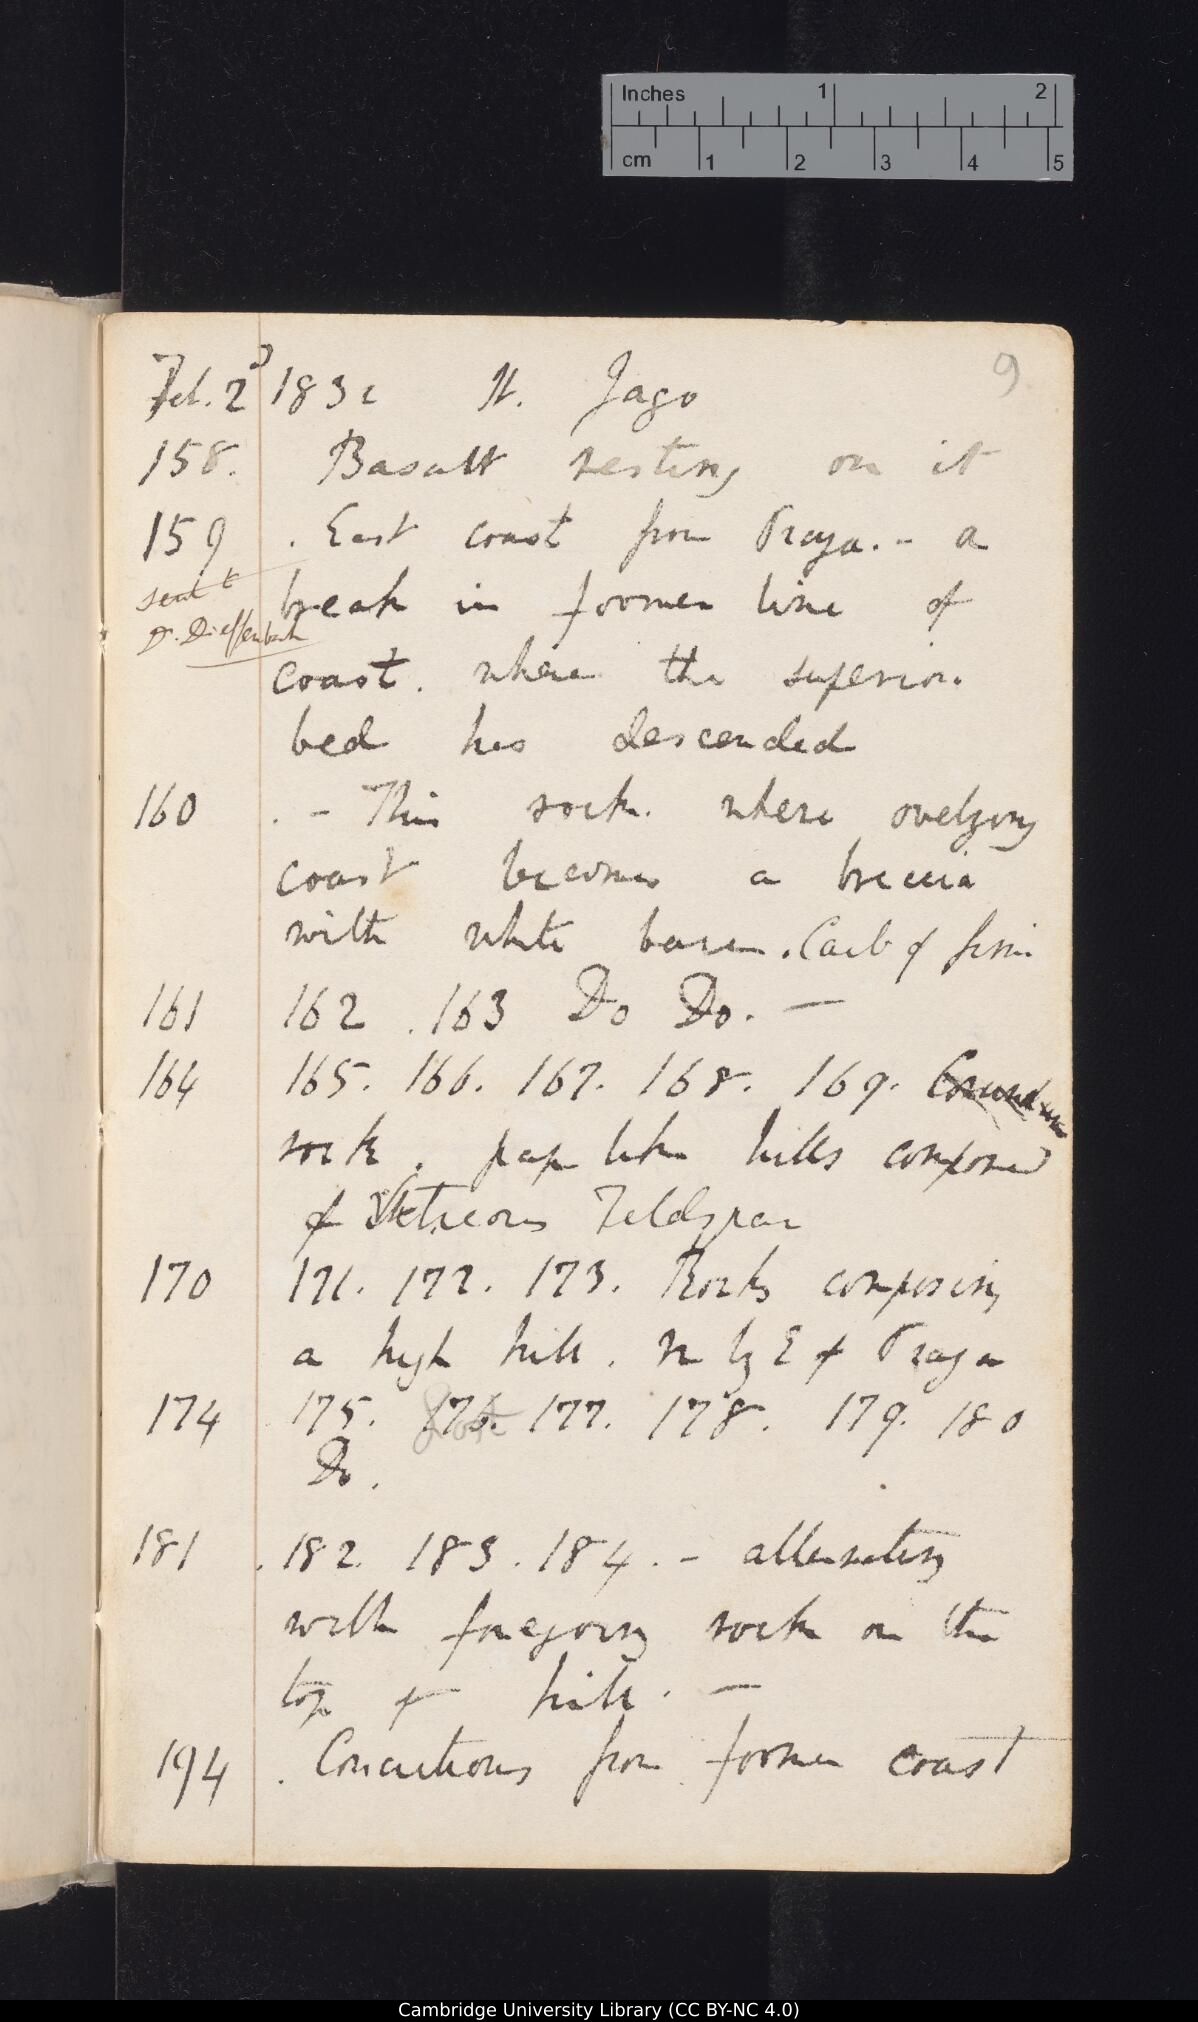 Inches 1 2
cm 1 2 3 4 5
9
Feb. 2d 1832 St. Jago
158. Basalt resting on it
159 . East coast from Praya. - a
sent to
break in former line of
Dr. Dieffenbach
coast. where the superior.
bed has descended
160 . - This rock. where
coast becomes a breccia
with white base. Carb of
161 162 . 163 Do Do. —
164 165. 166. 167. 168. 169. Corundum
rock. pap like hills composed
of Feldspar
170 171. 172. 173. Rocks composing
a high hill. N by E of Praya
174 175. 176. 177. 178. 179. 180
Lost
Do.
181 . 182. 183. 184. - alternating
with foregoing rock on the
top of hill. —
194 . Concretions from former coast
Cambridge University Library (CC BY-NC 4.0)